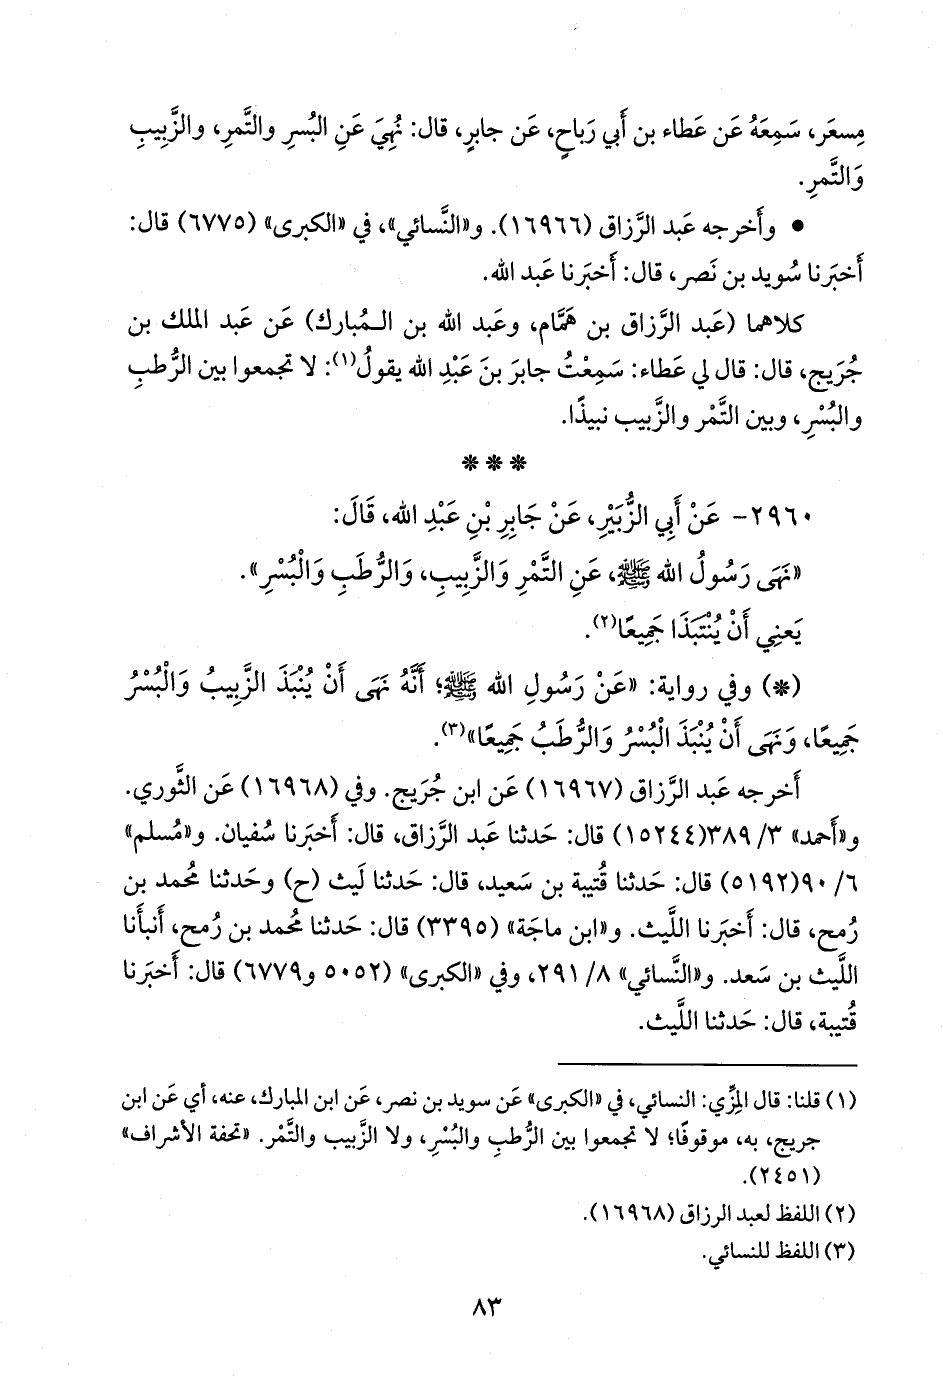 مِسعَر، سَمِعَهُ عَن عَطاء بن أَبي رَباحٍ، عَن جابرٍ، قال: نُهِيَ عَنِ البُسرِ والتَّمرِ، والزَّبِيبِ
وَالتَّمرِ.
• وأَخرجه عَبد الرَّزاق (١٦٩٦٦). و«النَّسائي»، في «الكبرى» (٦٧٧٥) قال:
أَخبَرنا سُويد بن نَصر، قال: أَخبَرنا عَبد الله.
كلاهما (عَبد الرَّزاق بن هَمَّام، وعَبد الله بن الـمُبارك) عَن عَبد الملك بن
جُرَيج، قال: قال لي عَطاء: سَمِعْتُ جابرَ بنَ عَبْدِ الله يقولُ(١): لا تجمعوا بين الرُّطبِ
والبُسْرِ، وبين التَّمْر والزَّبيب نبيذًا.
***
٢٩٦٠- عَنْ أَبِي الزُّبَيْرِ، عَنْ جَابِرِ بْنِ عَبْدِ الله، قَالَ:
«نَهَى رَسُولُ الله ﷺ، عَنِ التَّمْرِ وَالزَّبِيبِ، وَالرُّطَبِ وَالْبُسْرِ».
يَعنِي أَنْ يُنْتَبَذَا جَمِيعًا(٢).
(*) وفي رواية: «عَنْ رَسُولِ الله ﷺ؛ أَنَّهُ نَهَى أَنْ يُنْبَذَ الزَّبِيبُ وَالْبُسْرُ
جَمِيعًا، وَنَهَى أَنْ يُنْبَذَ الْبُسْرُ وَالرُّطَبُ جَمِيعًا»(٣).
أَخرجه عَبد الرَّزاق (١٦٩٦٧) عَن ابن جُرَيج. وفي (١٦٩٦٨) عَن الثَّوري.
و«أَحمد» ٣/ ٣٨٩(١٥٢٤٤) قال: حَدثنا عَبد الرَّزاق، قال: أَخبَرنا سُفيان. و«مُسلم»
٦/ ٩٠(٥١٩٢) قال: حَدثنا قُتيبة بن سَعيد، قال: حَدثنا لَيث (ح) وحَدثنا مُحمد بن
رُمح، قال: أَخبَرنا اللَّيث. و«ابن ماجَة» (٣٣٩٥) قال: حَدثنا مُحمد بن رُمح، أَنبأَنا
اللَّيث بن سَعد. و«النَّسائي» ٨/ ٢٩١، وفي «الكبرى» (٥٠٥٢ و٦٧٧٩) قال: أَخبَرنا
قُتيبة، قال: حَدثنا اللَّيث.
(١) قلنا: قال المِزِّي: النسائي، في «الكبرى» عَن سويد بن نصر، عَن ابن المبارك، عنه، أي عَن ابن
جريج، به، موقوفًا؛ لا تجمعوا بين الرُّطبِ والبُسْرِ، ولا الزَّبيب والتَّمْر. «تحفة الأشراف»
(٢٤٥١).
(٢) اللفظ لعبد الرزاق (١٦٩٦٨).
(٣) اللفظ للنسائي.
٨٣